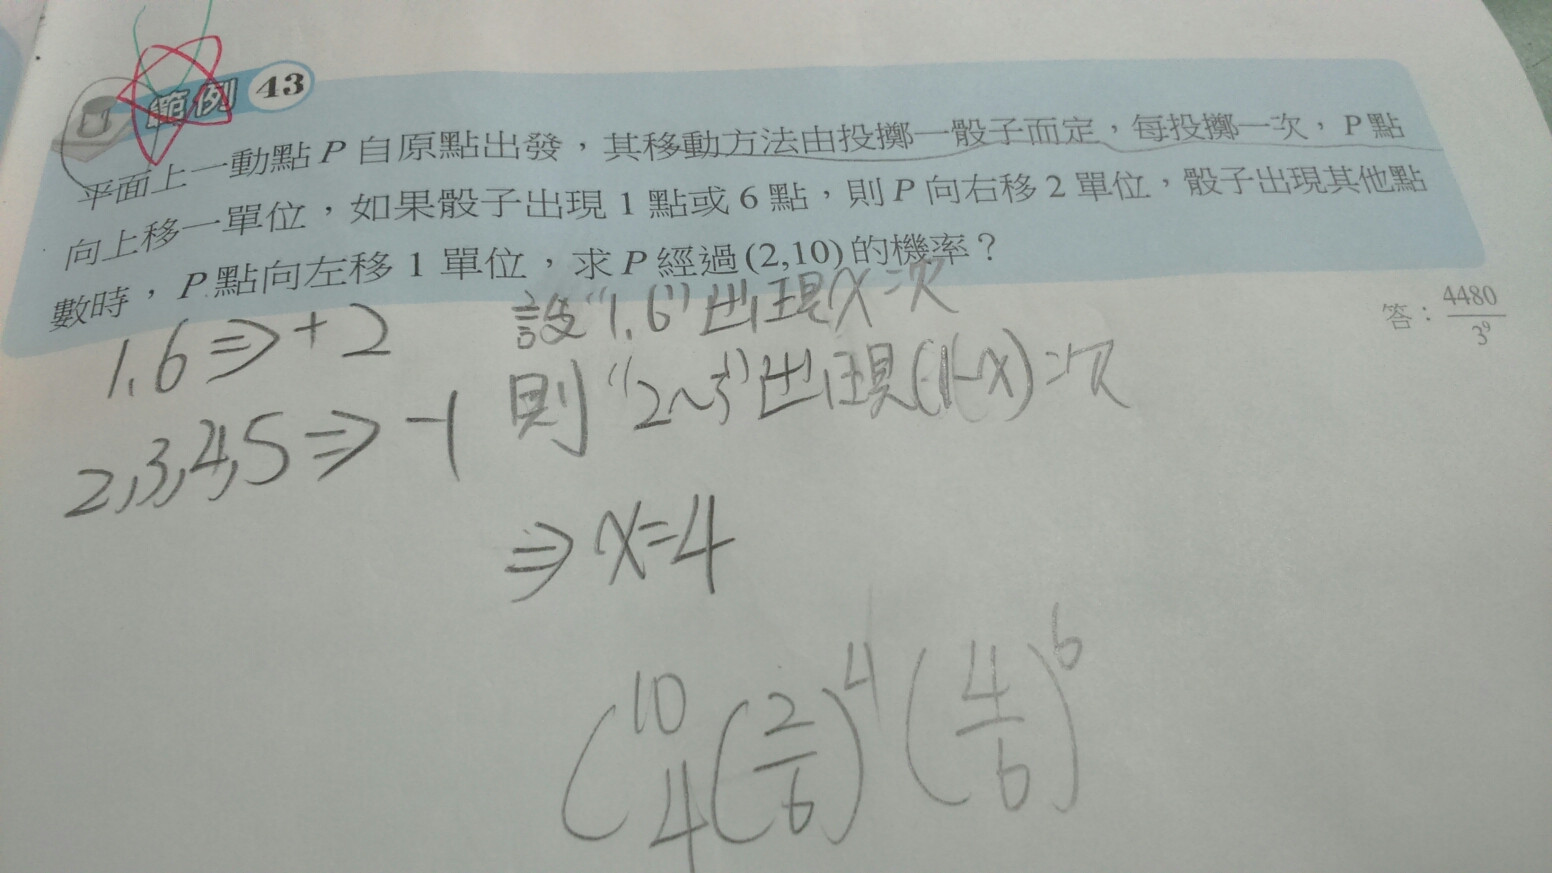 範例 43
平面上一動點 P 自原點出發，其移動方法由投擲一骰子而定，每投擲一次，P 點
向上移一單位，如果骰子出現 1 點或 6 點，則 P 向右移 2 單位，骰子出現其他點
數時，P 點向左移 1 單位，求 P 經過 (2,10) 的機率？
答：4480/3^9
1,6 ⇒ +2
2,3,4,5 ⇒ -1
設"1,6"出現x次
則"2~5"出現(1-x)次
⇒ x=4
(10 4)(2/6)^4(4/6)^6